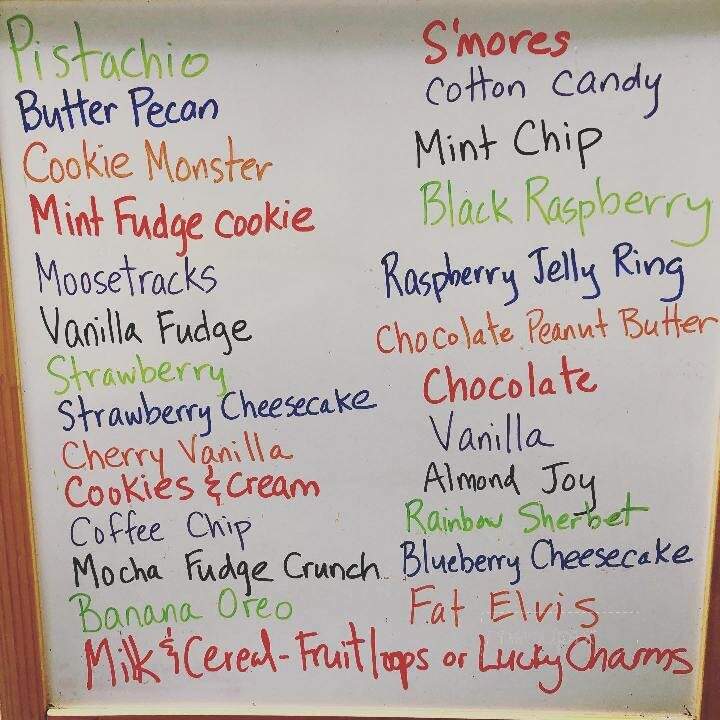 Pistachio
Butter Pecan
Cookie Monster
Mint Fudge cookie
Moosetracks
Vanilla Fudge
Strawberry
Strawberry Cheesecake
Cherry Vanilla
Cookies & Cream
Coffee Chip
Mocha Fudge Crunch
Banana Oreo
S'mores
Cotton Candy
Mint Chip
Black Raspberry
Raspberry Jelly Ring
Chocolate Peanut Butter
Chocolate
Vanilla
Almond Joy
Rainbow Sherbet
Blueberry Cheesecake
Fat Elvis
Milk & Cereal - Fruit loops or Lucky Charms